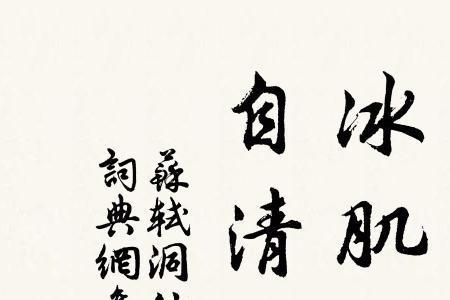 冰肌
自清
蘇軾洞
詞典網